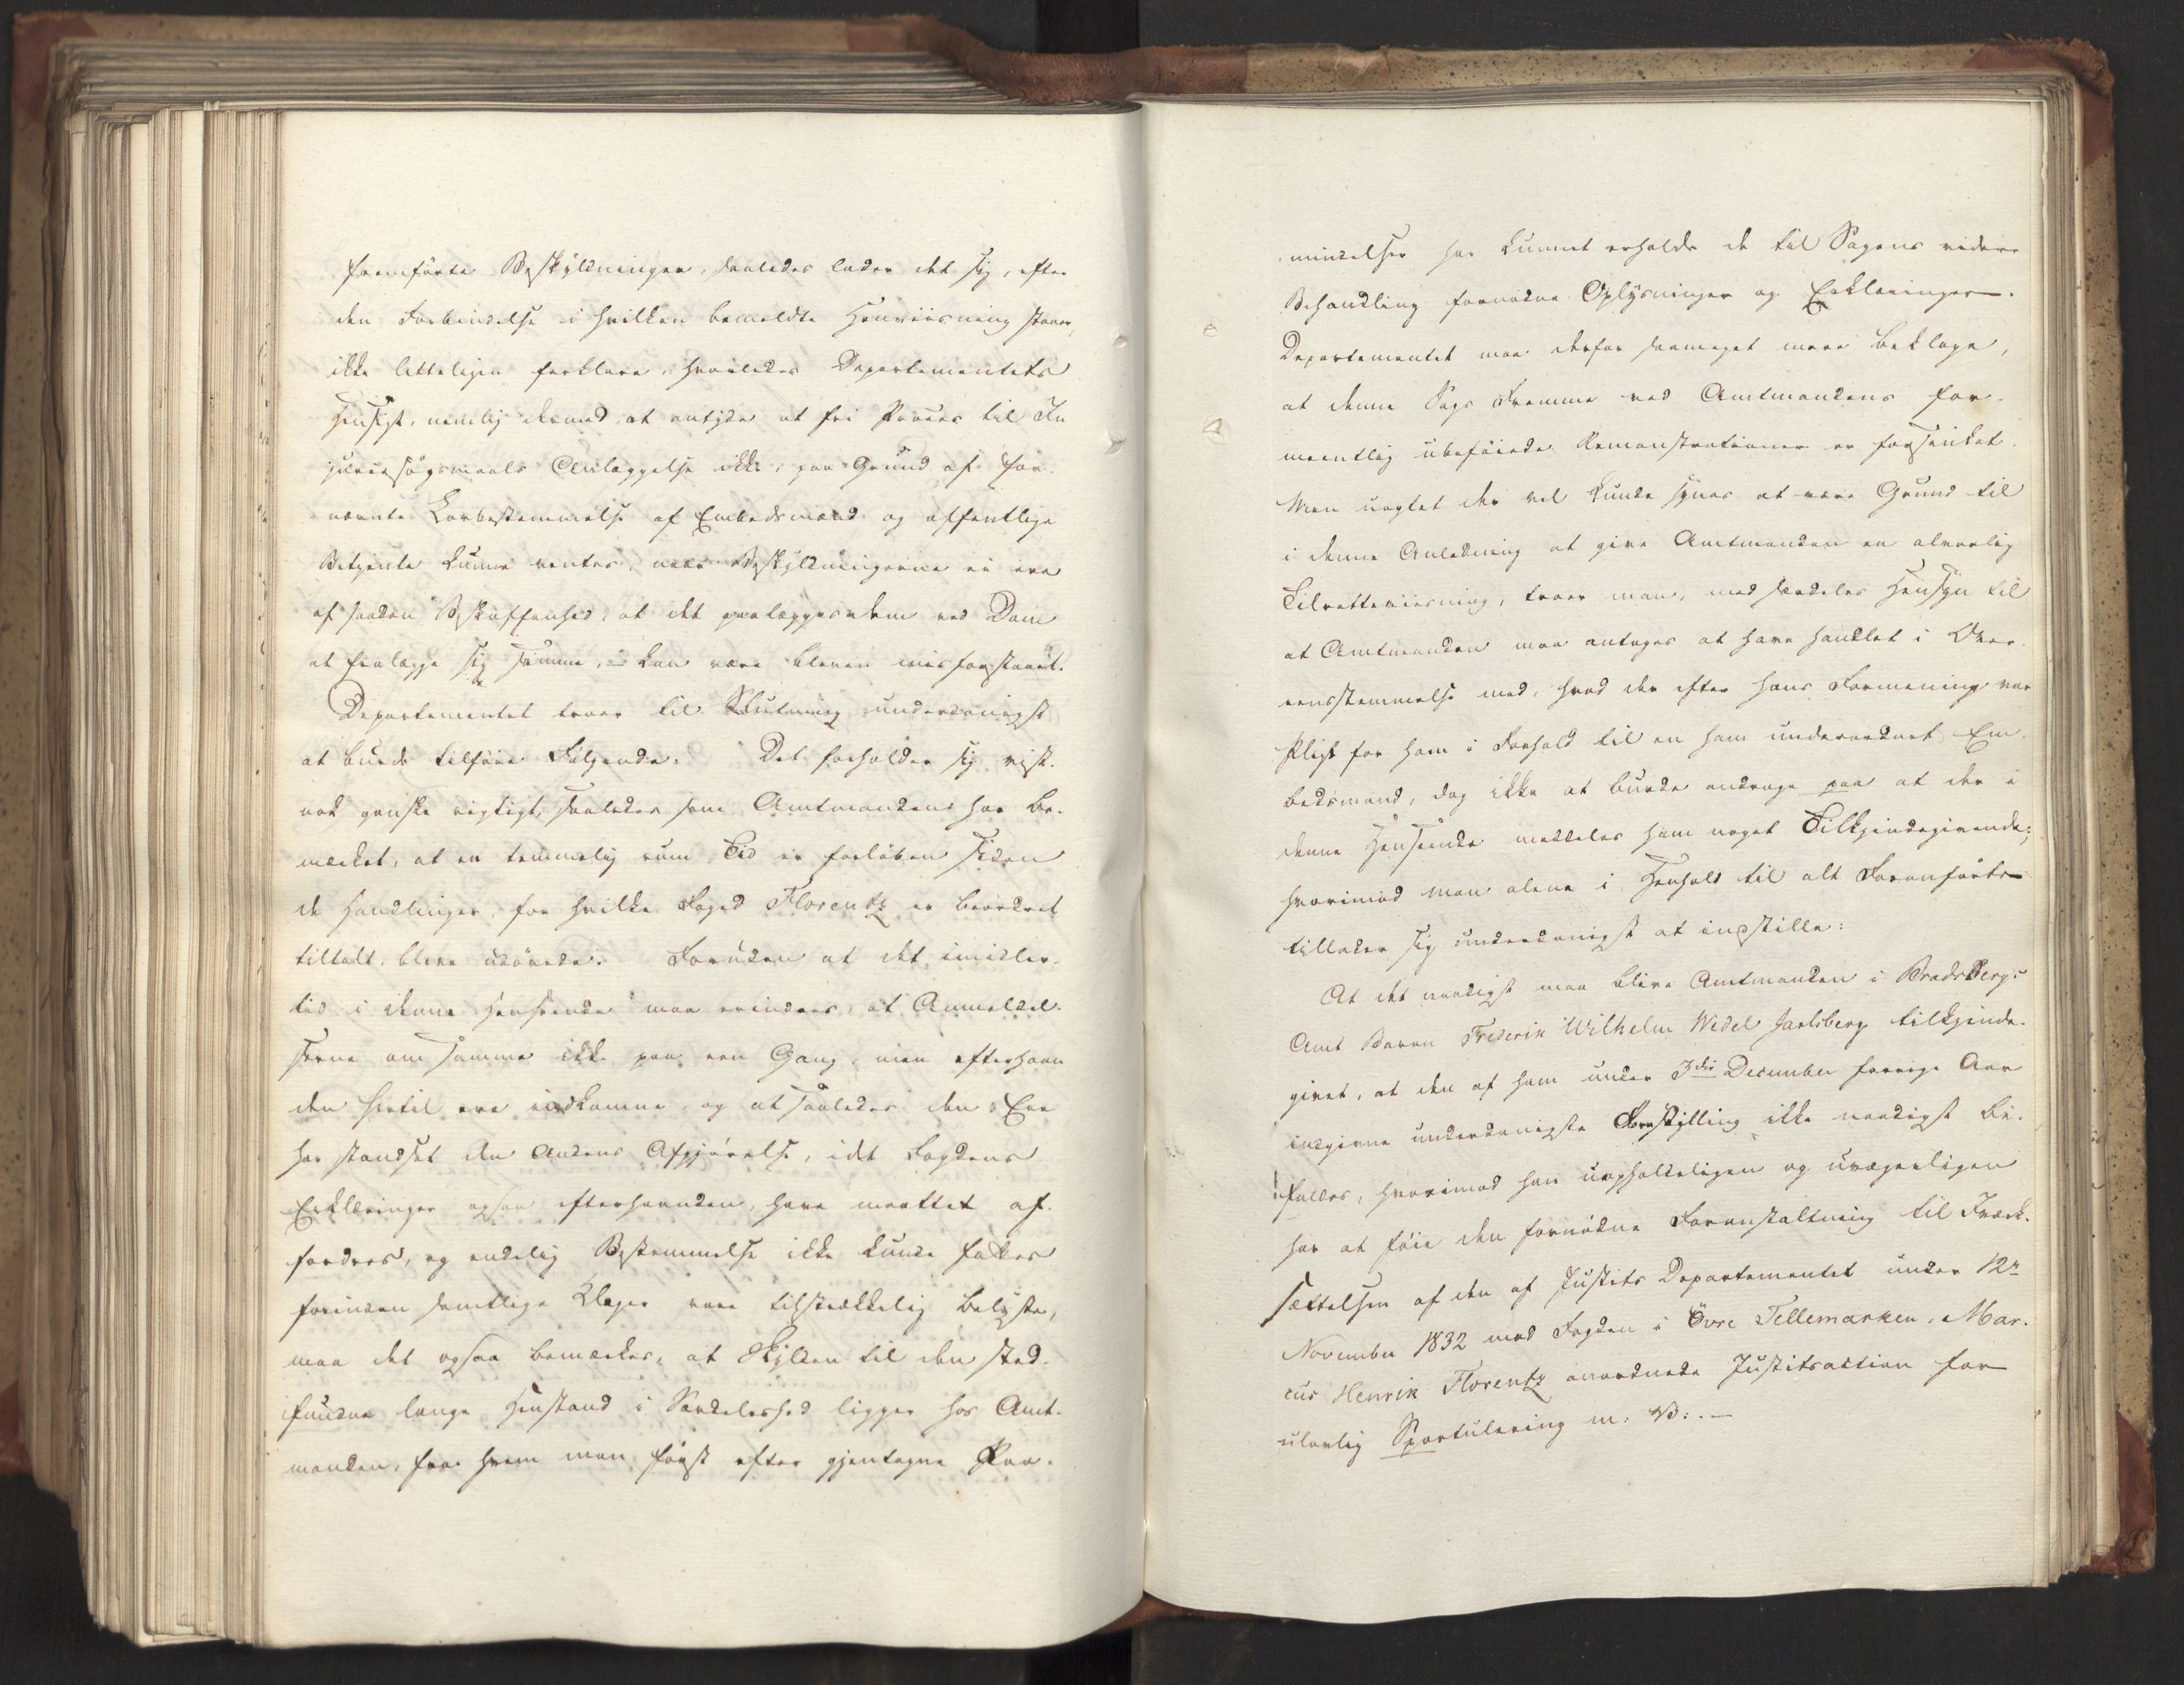 fremførte Beskyldninger, saaledes lader det sig, efter
den Forbindelse i hvilken bemeldte Henviisning staaer,
ikke letteligen forklare, hvorledes Departementets
Hensigt, nemlig dermed at antyde at fri Proces til In
juriesøgsmaals Anlæggelse ikke, paa Grund af for-
nævnte Lovbestemmelse af Embedsmænd og offentlige
Betjente kunne ventes, naar Beskyldningerne ei ere
af saadan Beskaffenhed, at det paalægges dem ved Dom
at fralægge sig samme, kan være bleven misforstaaet.
Departementet troer til Slutning underdanigst
at burde tilføie Følgende: Det forholder sig vist-
nok ganske rigtigt, saaledes som Amtmanden har be-
mærket, at en temmelig rum Tid er forløben siden
de Handlinger, for hvilke Foged Florentz er beordret
tiltalt, bleve udøvede. Foruden at det imidler-
tid i denne Henseende maa erindres, at Anmeldel-
serne om samme ikke paa een Gang, men efterhaan
den hertil ere indkomne, og at saaledes den Ene
har standset den Andens Afgjørelse, idet Fogdens
Erklæringer ogsaa efterhaanden, have maattet af-
fordres, og endelig Bestemmelse ikke kunde fattes
forinden samtlige Klager vare tilstrækkelig belyste,
maa det ogsaa bemærkes, at Skylden til den sted-
fundne lange Henstand i Særdeleshed ligger hos Amt-
manden, fra hvem man først efter gjentagne Paa-
mindelser har kunnet erholde de til Sagens videre
Behandling fornødne Oplysninger og Erklæringer.
Departementet maa derfor saameget mere beklage,
at denne Sags Fremme ved Amtmandens for-
meentlig ubeføiede Remonstrationer er forsinket.
Men uagtet der vel kunde synes at være Grund til
i denne Anledning at give Amtmanden en alvorlig
Tilretteviisning, troer man, med særdeles Hensyn til
at Amtmanden maa antages at have handlet i Over-
eensstemmelse med, hvad der efter hans Formening var
Pligt for ham i Forhold til en ham underordnet Em-
bedsmand, dog ikke at burde andrage paa at der i
denne Henseende meddeles ham noget Tilkjendegivende;
hvorimod man alene i Henhold til alt Foranførte
tillader sig underdanigst at indstille:
At det naadigst maa blive Amtmanden i Bradsbergs
Amt Baron Frederik Wilhelm Wedel Jarlsberg tilkjende-
givet, at den af ham under 3die December forrige Aar
indgivne underdanigste Forestilling ikke naadigst bi-
faldes, hvorimod han uopholdeligen og uvægerligen
har at føie den fornødne Foranstaltning til Iværk-
sættelsen af den af Justits Departementet under 12te
November 1832 mod Fogden i Övre Tellemarken, Mar-
cus Henrik Florentz anordnede Justitsaction for
ulovlig Sportulering m: V:. –